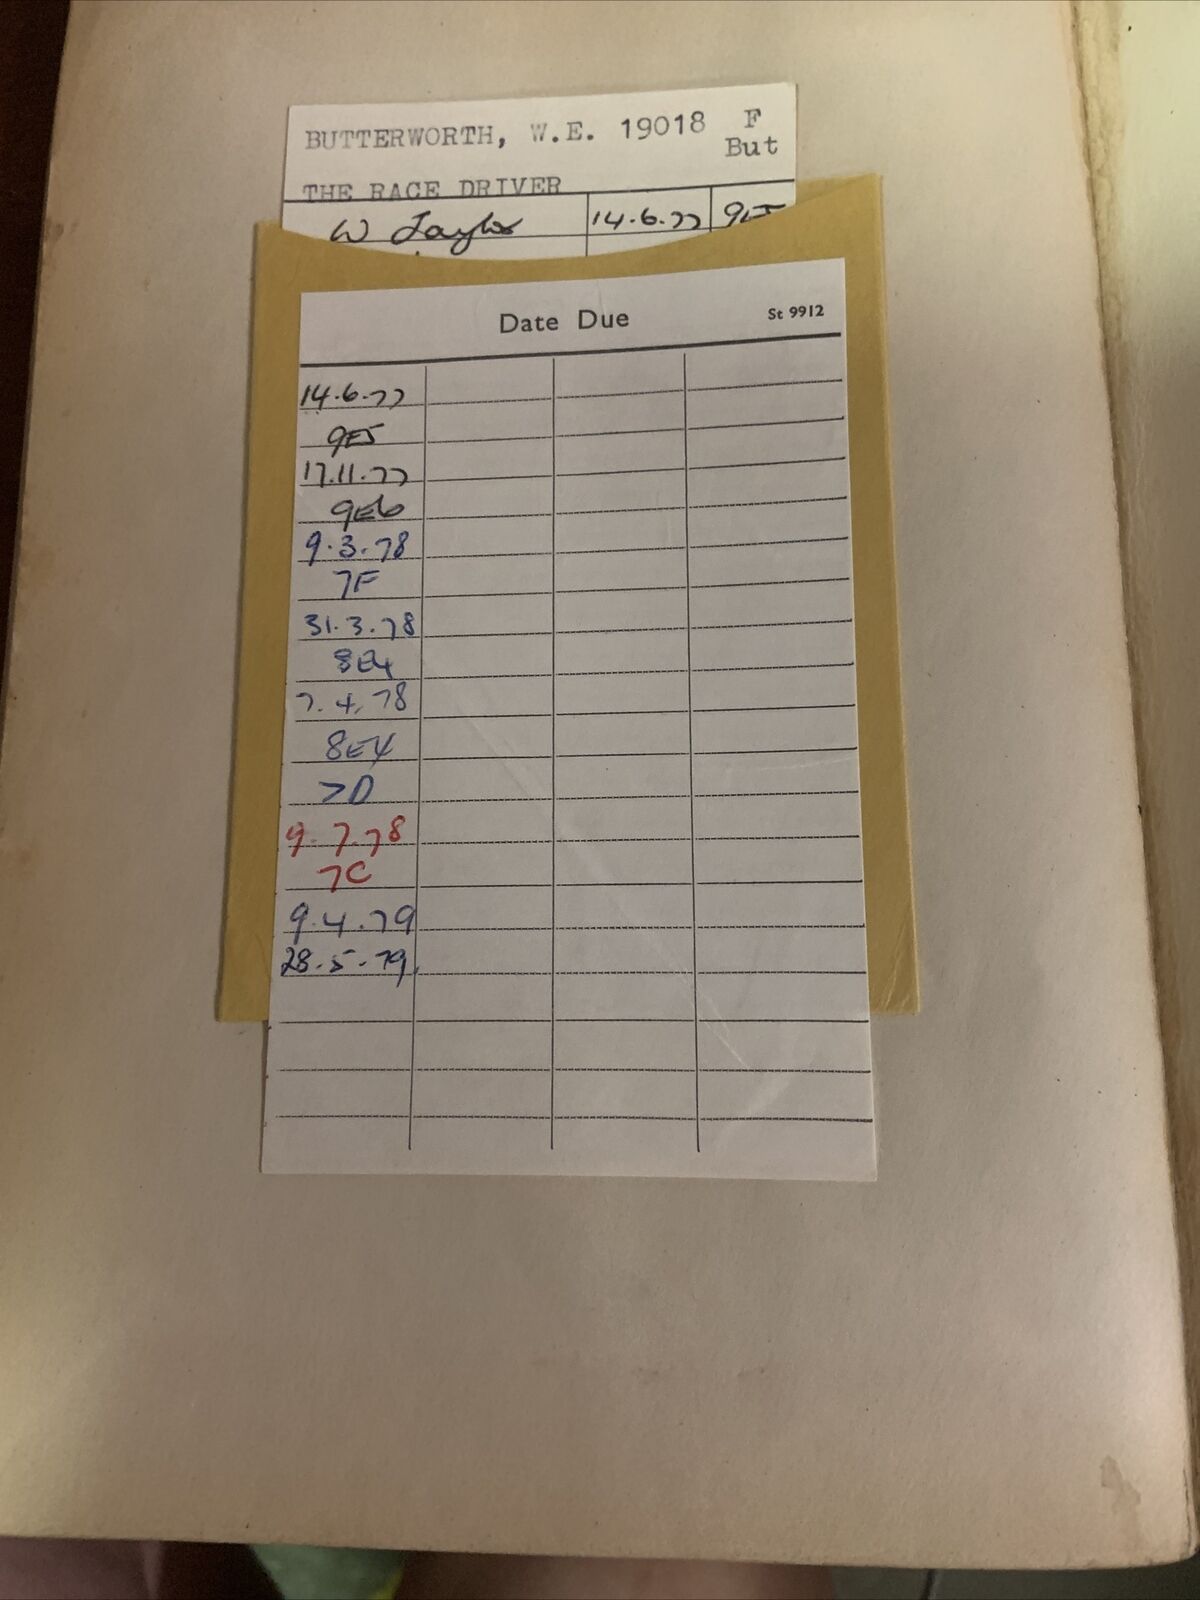 BUTTERWORTH, W.E. 19018 F
But
THE RACE DRIVER
W Taylor 14.6.77 9E5
Date Due St 9912
14.6.77
9E5
17.11.77
9E6
9.3.78
7F
31.3.78
8E4
7.4.78
8E4
7D
9.7.78
7C
9.4.79
28.5.79